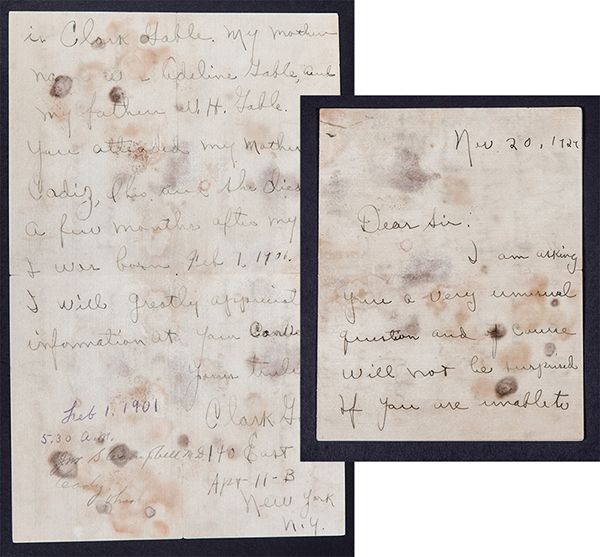 Nov. 20, 192
Dear Sir:
I am asking
you a very unusual
question and of cause
will not be surprised
if you are unable to
is Clark Gable. My mother
Adeline Gable, and
my father H. Gable.
You attended my Mother
Cadiz, Ohio. and she died
a few months after my
I was born. Feb 1, 1901.
I will greatly appreciat
information at your
Yours trul
Clark G
Feb 1. 1901
5.30 A.M.
140 East
Apt-11-B
New York
N.Y.